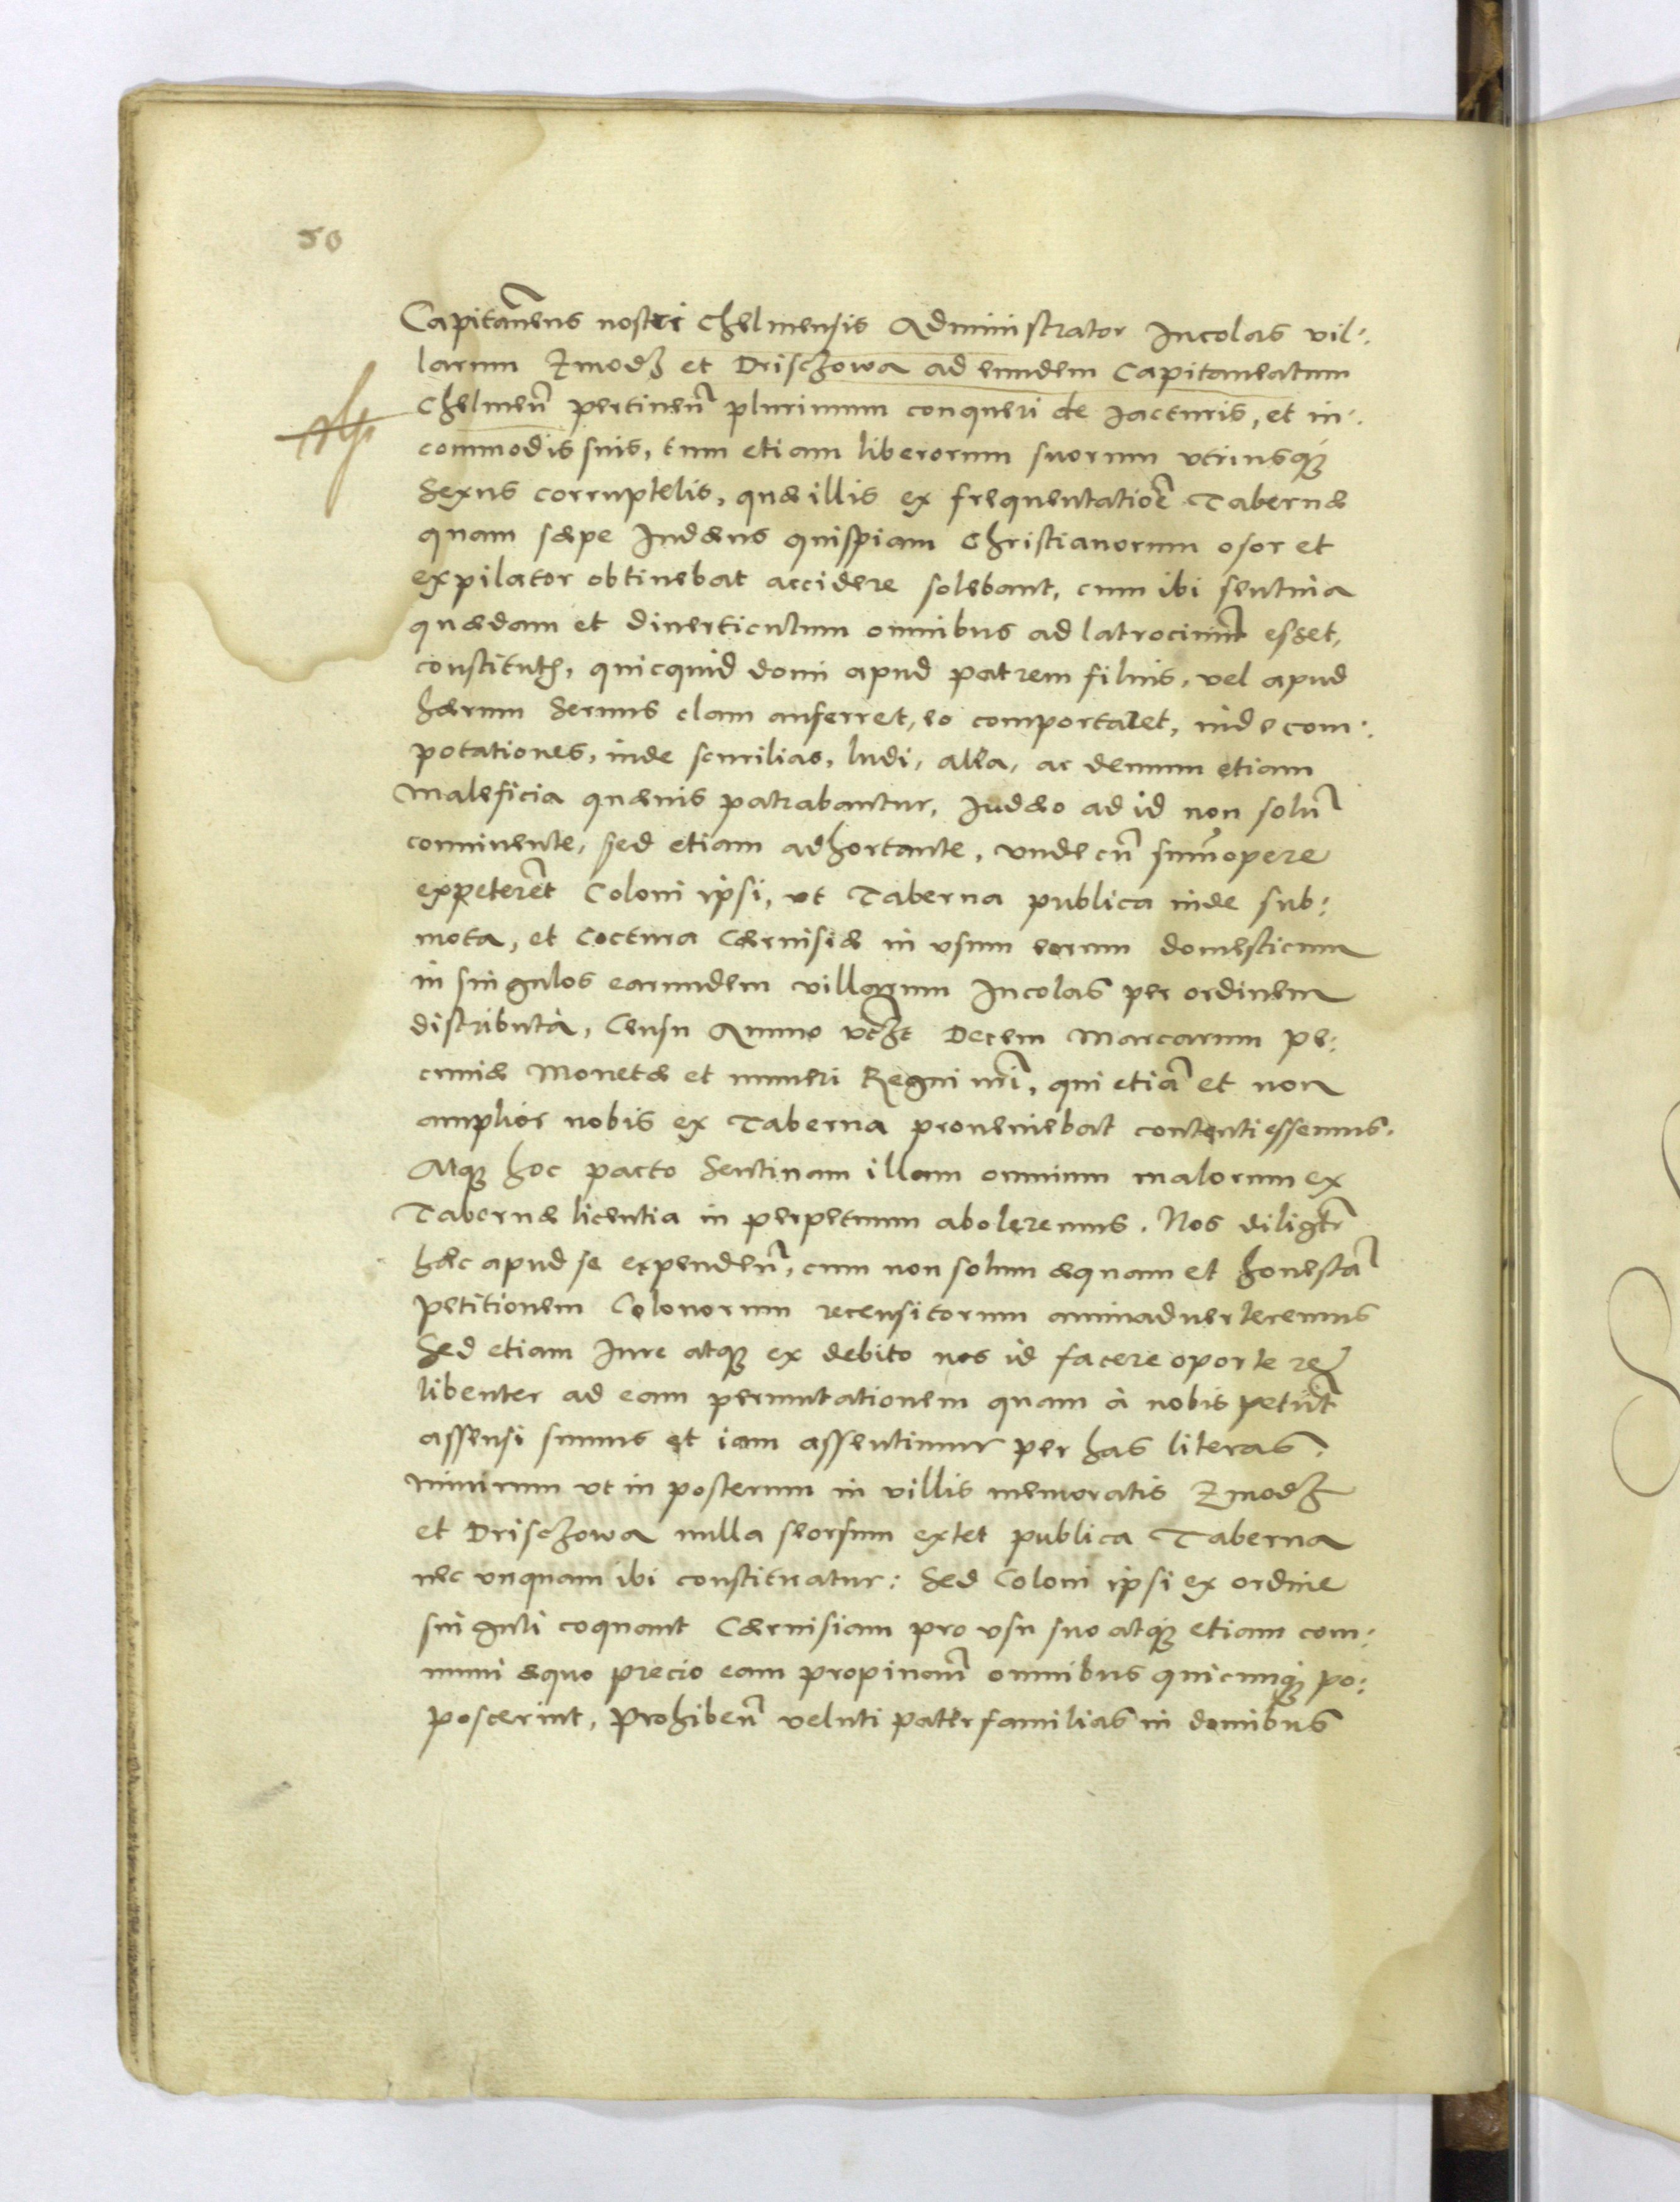 50
Capitaneus nostri Chelmensis Administrator Incolas vil:
larum Zmodz et Drisczowa ad eundem Capitaneatum
Chelmeñ pertineñ plurimum conqueri de Iacturis, et in:
commodis suis, tum etiam liberorum suorum utriusq3
Sexus corruptelis, quæ illis ex frequentatiõe Tabernæ
quam sæpe Iudæus quispiam Christianorum osor et
expilator obtinebat accidere solebant, cum ibi sentina
quædam et diverticulum omnibus ad latrocinium esset,
constitutũ, quicquid domi apud patrem filius, vel apud
hærum servus clam auferret, eo comportaret, inde com:
potationes, inde scurilias, ludi, alea, ac demum etiam
maleficia quævis patrabantur, Iudæo ad id non solũ
connivente, sed etiam adhortante, unde cũ sumõopere
expeterẽt Coloni ipsi, ut Taberna publica inde sub:
mota, et coctura Cærvisiæ in usum eorum domesticum
in singulos earundem villarum Incolas per ordinem
distributa, Censu Annuo utpote Decem Marcarum pe:
cuniæ Monetæ et numeri Regni nr̃i, qui etiã et non
amplior nobis ex Taberna proveniebat contenti essemus.
Atq3 hoc pacto Sentinam illam omnium malorum ex
Tabernæ licentia in perpetuum aboleremus. Nos diligẽtr
hæc apud se expendeñ, cum non solum æquam et honestã
petitionem Colonorum recensitorum animadverteremus
Sed etiam Iure atq3 ex debito nos id facere oportere
libenter ad eam permutationem quam à nobis petũt
assensi sumus et iam assentimur per has literas.
nimirum ut in posterum in villis memoratis Zmodz
et Drisczowa nulla seorsum extet publica Taberna
nec unquam ibi constituatur: Sed Coloni ipsi ex ordine
singuli coquant Cærvisiam pro usu suo atq3 etiam com:
muni æquo precio eam propinañ omnibus quicunq3 po:
poscerint, Prohibeñ veluti paterfamilias in domibus